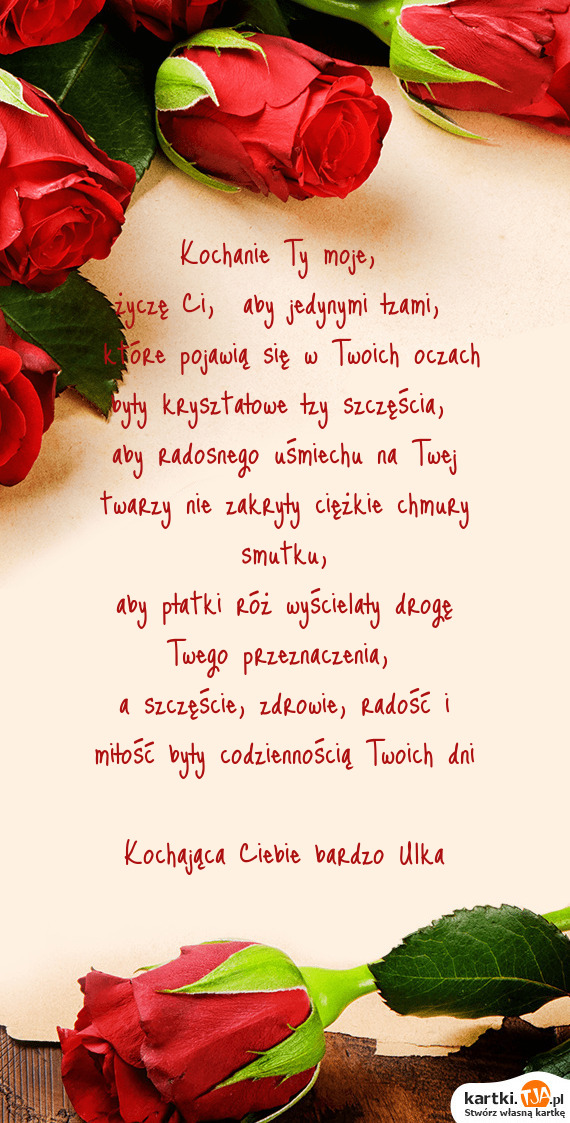 Kochanie Ty moje,
życzę Ci, aby jedynymi łzami,
które pojawią się w Twoich oczach
były kryształowe łzy szczęścia,
aby radosnego uśmiechu na Twej
twarzy nie zakryły ciężkie chmury
smutku,
aby płatki róż wyścielały drogę
Twego przeznaczenia,
a szczęście, zdrowie, radość i
miłość były codziennością Twoich dni
Kochająca Ciebie bardzo Ulka
kartki.TJA.pl
Stwórz własną kartkę